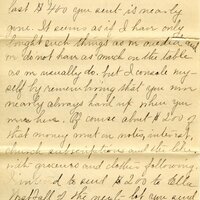 last $400 you sent is nearly
gone. It seems as if I have only
bought such things as in needed and
do not have as much on the table
as we usually do, yet I console my-
self by remembering that you were
nearly always hard up when you
were here. Of course about $200 of
that money went on notes, interest,
church subscriptions and the like,
with groceries and clothes following
to send $200 to Ella
last half of the next lot you send